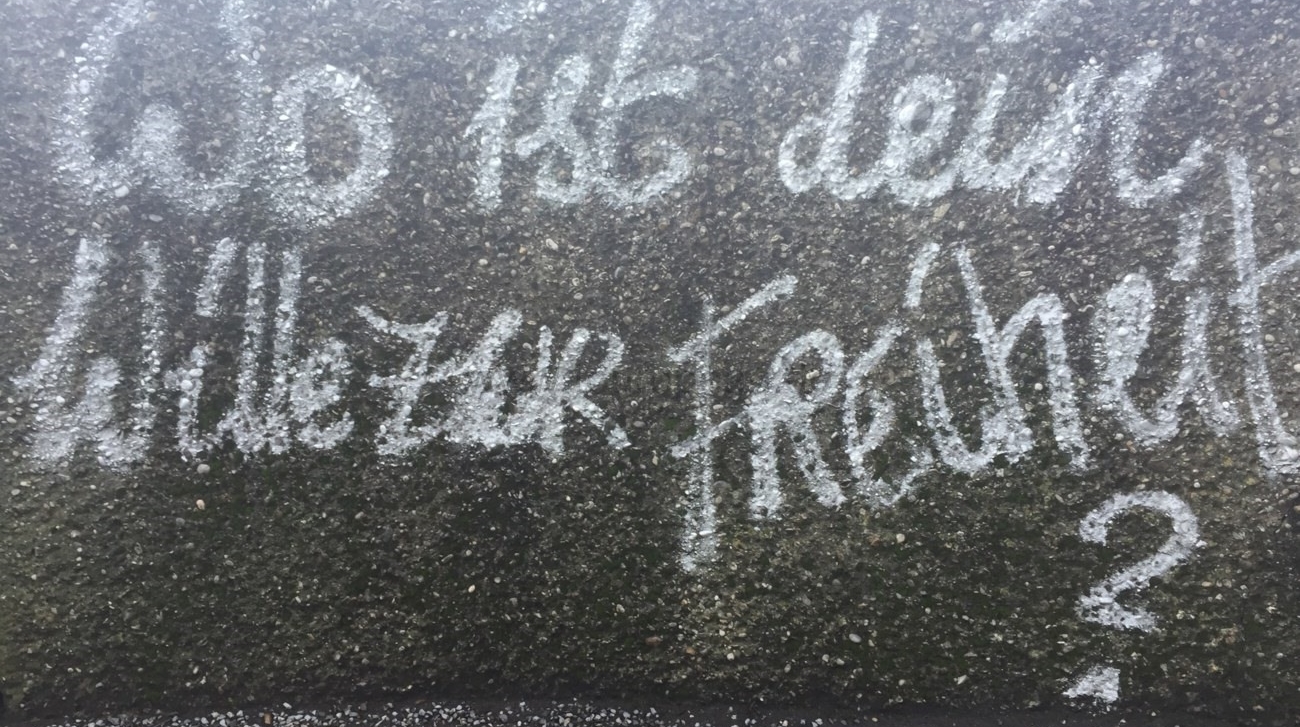 Wo ist dein
Wille zur FReiheit
?